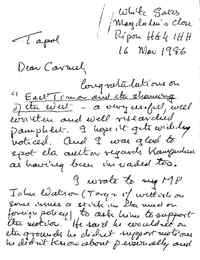 White Gates
Magdalen's Close
Tapol
Ripon HG4 1HH
16 Nov 1986
Dear Carmel,
Congratulations on
"East Timor and the shaming
of the West" - a very useful, well
written and well researched
pamphlet. I hope it gets widely
noticed. And I was glad to
spot the author regards
as having been invaded too.
I wrote to my MP
John Watson (Tory: I write on
some issues a week in the
foreign policy) to ask him to support
the motion. He said he wouldn't on
the grounds he didn't support motions
he didn't know about personally and